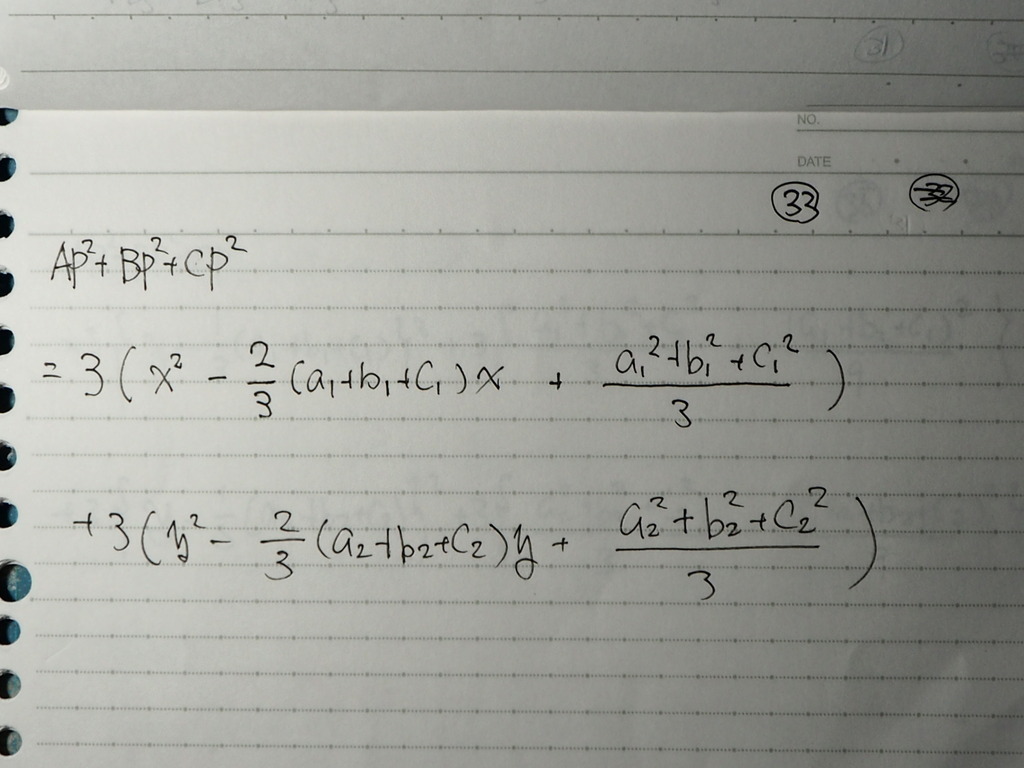 NO.
DATE
33 32
AP²+BP²+CP²
= 3(x² - 2/3(a₁+b₁+c₁)x + (a₁²+b₁²+c₁²)/3)
+3(y² - 2/3(a₂+b₂+c₂)y + (a₂²+b₂²+c₂²)/3)